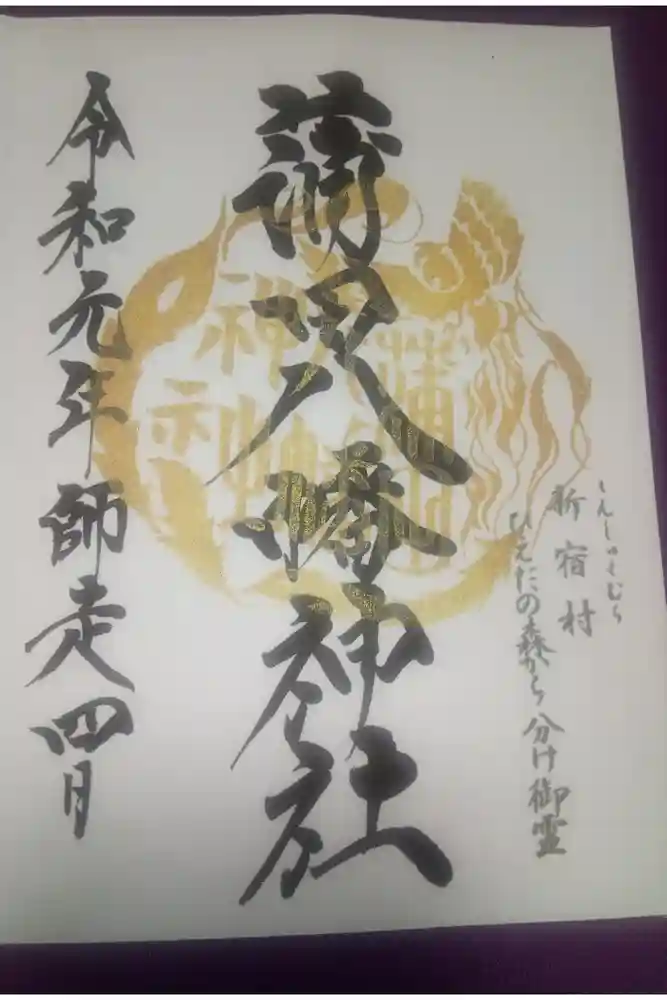 しんしゅくむら
新宿村
ひえだの森から分け御霊
蒲田八幡神社
令和元年師走四日